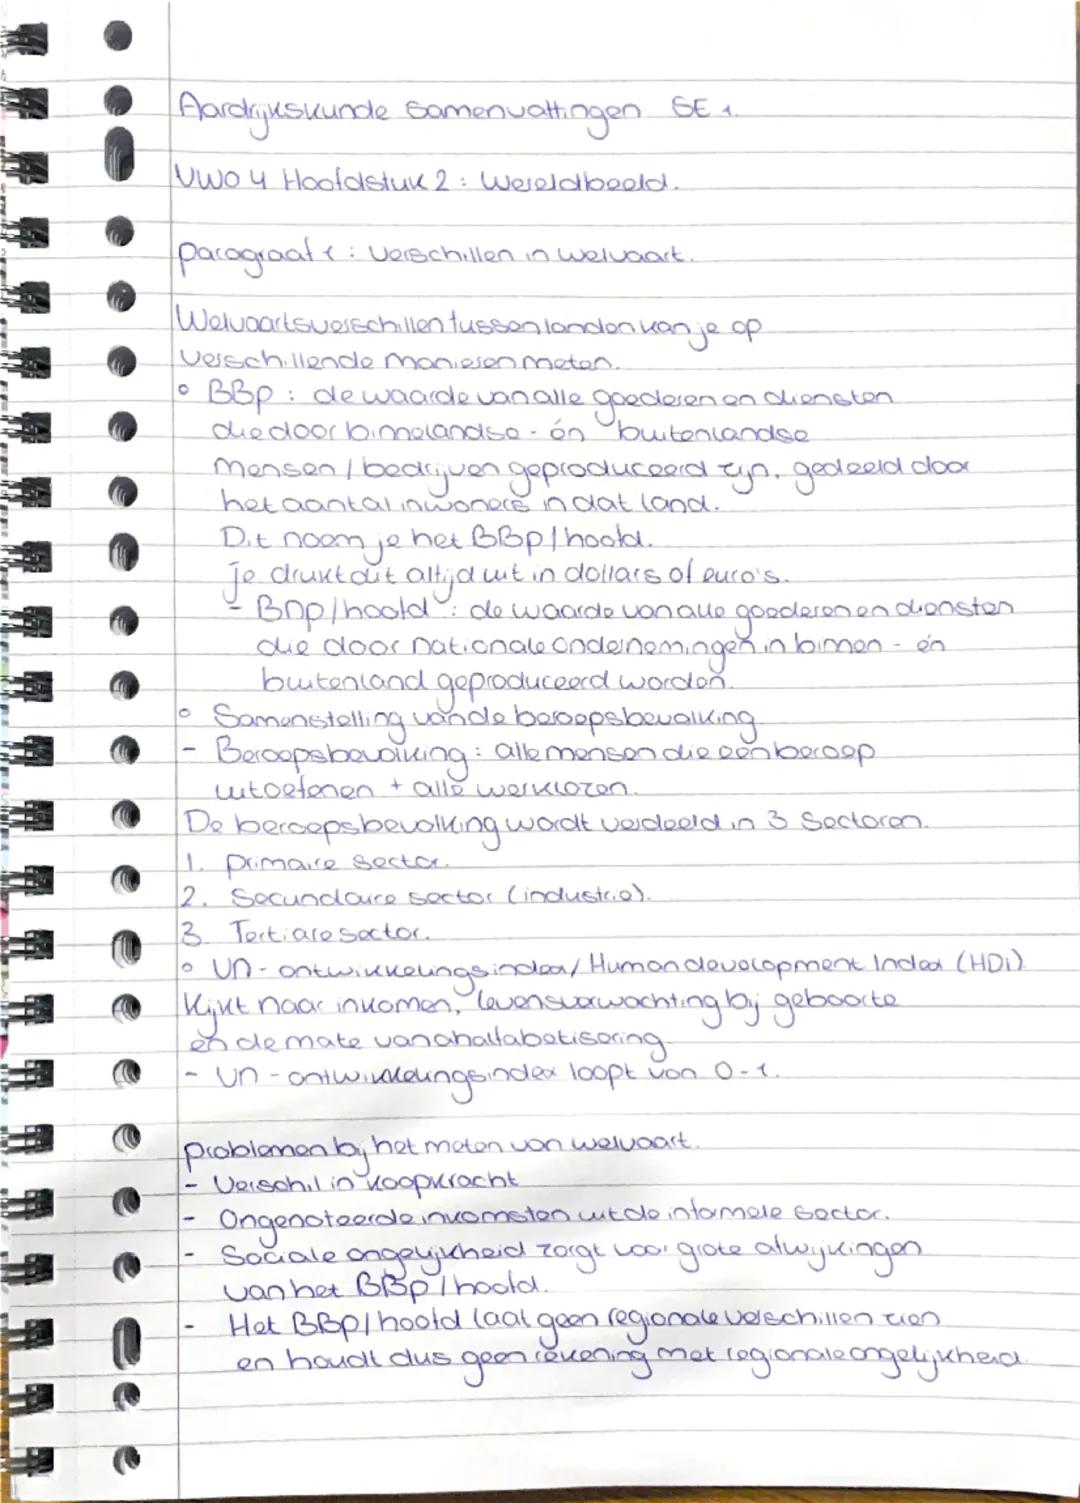 Aardrijkskunde Samenvattingen SE 1.
VWO 4 Hoofdstuk 2: Wereldbeeld.
paragraaf 1: Verschillen in welvaart.
Welvaartsverschillen tussen landen kan je op
verschillende manieren meten.
° BBp: de waarde van alle goederen en diensten
die door binnelandse- én buitenlandse
mensen / bedrijven geproduceerd zijn, gedeeld door
het aantal inwoners in dat land.
Dit noem je het BBp/hoofd.
je drukt dit altijd uit in dollars of euro's.
- Bnp/hoofd: de waarde van alle goederen en diensten
die door nationale ondernemingen in binnen- én
buitenland geproduceerd worden.
° Samenstelling van de beroepsbevolking
- Beroepsbevolking: alle mensen die een beroep
uitoefenen + alle werklozen.
De beroepsbevolking wordt verdeeld in 3 Sectoren.
1. primaire sector.
2. Secundaire sector (industrie).
3. Tertiare sector.
° VN-ontwikkelingsindex/Human development Index (HDi)
Kijkt naar inkomen, levensverwachting bij geboorte
en de mate van analfabetisering
- VN-ontwikkelingsindex loopt van 0-1.
problemen bij het meten van welvaart.
- Verschil in koopkracht
- Ongenoteerde inkomsten uit de informele sector.
- Sociale ongelijkheid zorgt voor grote afwijkingen
van het BBp/hoofd.
- Het BBp/hoofd laat geen regionale verschillen zien
en houdt dus geen rekening met regionale ongelijkheid.